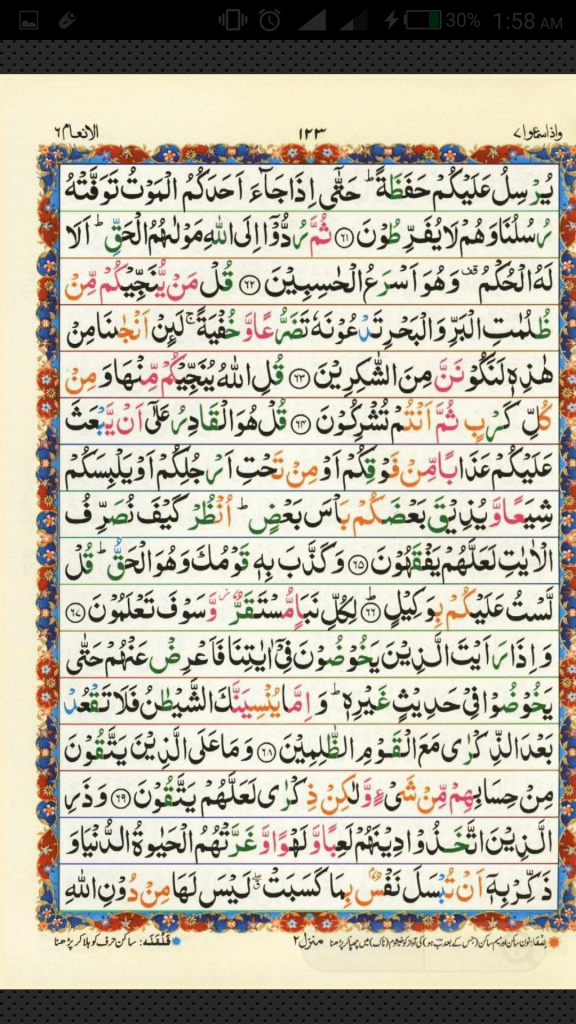 30% 1:58 AM
واذاسمعوا ٧ ١٢٣ الانعام ٦
يُرْسِلُ عَلَيْكُمْ حَفَظَةً ؕ حَتّٰۤى اِذَا جَآءَ اَحَدَكُمُ الْمَوْتُ تَوَفَّتْهُ
رُسُلُنَا وَهُمْ لَا يُفَرِّطُوْنَ ﴿٦١﴾ ثُمَّ رُدُّوْۤا اِلَى اللّٰهِ مَوْلٰىهُمُ الْحَقِّ ؕ اَلَا
لَهُ الْحُكْمُ ۫ وَهُوَ اَسْرَعُ الْحٰسِبِيْنَ ﴿٦٢﴾ قُلْ مَنْ يُّنَجِّيْكُمْ مِّنْ
ظُلُمٰتِ الْبَرِّ وَالْبَحْرِ تَدْعُوْنَهٗ تَضَرُّعًا وَّخُفْيَةً ۚ لَئِنْ اَنْجٰىنَا مِنْ
هٰذِهٖ لَنَكُوْنَنَّ مِنَ الشّٰكِرِيْنَ ﴿٦٣﴾ قُلِ اللّٰهُ يُنَجِّيْكُمْ مِّنْهَا وَ مِنْ
كُلِّ كَرْبٍ ثُمَّ اَنْتُمْ تُشْرِكُوْنَ ﴿٦٤﴾ قُلْ هُوَ الْقَادِرُ عَلٰۤى اَنْ يَّبْعَثَ
عَلَيْكُمْ عَذَابًا مِّنْ فَوْقِكُمْ اَوْ مِنْ تَحْتِ اَرْجُلِكُمْ اَوْ يَلْبِسَكُمْ
شِيَعًا وَّيُذِيْقَ بَعْضَكُمْ بَاْسَ بَعْضٍ ؕ اُنْظُرْ كَيْفَ نُصَرِّفُ
الْاٰيٰتِ لَعَلَّهُمْ يَفْقَهُوْنَ ﴿٦٥﴾ وَكَذَّبَ بِهٖ قَوْمُكَ وَهُوَ الْحَقُّ ؕ قُلْ
لَّسْتُ عَلَيْكُمْ بِوَكِيْلٍ ﴿٦٦﴾ لِكُلِّ نَبَاٍ مُّسْتَقَرٌّ ۫ وَّسَوْفَ تَعْلَمُوْنَ ﴿٦٧﴾
وَاِذَا رَاَيْتَ الَّذِيْنَ يَخُوْضُوْنَ فِيْۤ اٰيٰتِنَا فَاَعْرِضْ عَنْهُمْ حَتّٰى
يَخُوْضُوْا فِيْ حَدِيْثٍ غَيْرِهٖ ؕ وَ اِمَّا يُنْسِيَنَّكَ الشَّيْطٰنُ فَلَا تَقْعُدْ
بَعْدَ الذِّكْرٰى مَعَ الْقَوْمِ الظّٰلِمِيْنَ ﴿٦٨﴾ وَمَا عَلَى الَّذِيْنَ يَتَّقُوْنَ
مِنْ حِسَابِهِمْ مِّنْ شَيْءٍ وَّلٰكِنْ ذِكْرٰى لَعَلَّهُمْ يَتَّقُوْنَ ﴿٦٩﴾ وَذَرِ
الَّذِيْنَ اتَّخَذُوْا دِيْنَهُمْ لَعِبًا وَّلَهْوًا وَّغَرَّتْهُمُ الْحَيٰوةُ الدُّنْيَا وَ
ذَكِّرْ بِهٖۤ اَنْ تُبْسَلَ نَفْسٌۢ بِمَا كَسَبَتْ ۖ لَيْسَ لَهَا مِنْ دُوْنِ اللّٰهِ
قَلْقَلَه: ساکن حرف کو ہلا کر پڑھنا منزل ٢